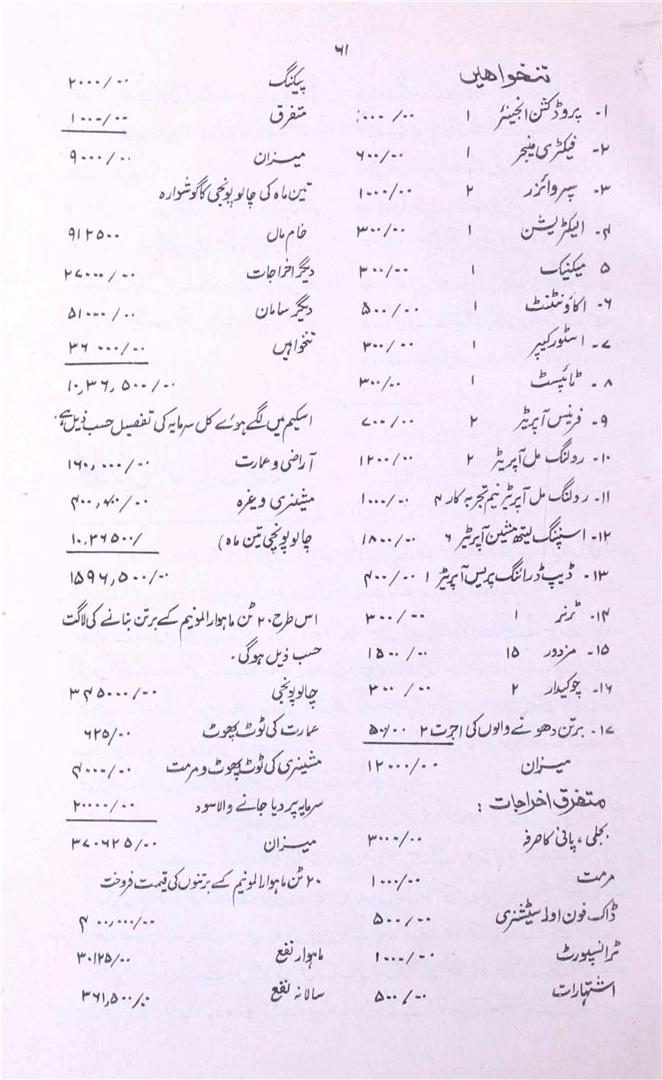 ۶۱
تنخواہیں
۱۔ پروڈکشن انجینئر ۱ ۱۰۰۰/۰۰
۲۔ فیکٹری منیجر ۱ ۶۰۰/۰۰
۳۔ سپروائزر ۲ ۱۰۰۰/۰۰
۴۔ الیکٹریشن ۱ ۳۰۰/۰۰
۵ میکنیک ۱ ۳۰۰/۰۰
۶۔ اکاؤنٹنٹ ۱ ۵۰۰/۰۰
۷۔ اسٹور کیپر ۱ ۳۰۰/۰۰
۸۔ ٹائپسٹ ۱ ۳۰۰/۰۰
۹۔ فرنیس آپریٹر ۲ ۷۰۰/۰۰
۱۰۔ رولنگ مل آپریٹر ۲ ۱۲۰۰/۰۰
۱۱۔ رولنگ مل آپریٹر نیم تجربہ کار ۴ ۱۰۰۰/۰۰
۱۲۔ اسپننگ لیتھ مشین آپریٹر ۶ ۱۸۰۰/۰۰
۱۳۔ ڈیپ ڈرائنگ پریس آپریٹر ۱ ۴۰۰/۰۰
۱۴۔ ٹرنر ۱ ۳۰۰/۰۰
۱۵۔ مزدور ۱۵ ۱۵۰۰/۰۰
۱۶۔ چوکیدار ۲ ۳۰۰/۰۰
۱۷۔ برتن دھونے والوں کی اجرت ۲ ۵۰۰/۰۰
میزان ۱۲۰۰۰/۰۰
متفرق اخراجات :
بجلی، پانی کا صرفہ ۳۰۰۰/۰۰
مرمت ۱۰۰۰/۰۰
ڈاک فون اور اسٹیشنری ۵۰۰/۰۰
ٹرانسپورٹ ۱۰۰۰/۰۰
اشتہارات ۵۰۰/۰۰
پیکنگ ۲۰۰۰/۰۰
متفرق ۱۰۰۰/۰۰
میزان ۹۰۰۰/۰۰
تین ماہ کی چالو پونجی کا گوشوارہ
خام مال ۹۱۲۵۰۰
دیگر اخراجات ۲۷۰۰۰/۰۰
دیگر سامان ۵۱۰۰۰/۰۰
تنخواہیں ۳۶۰۰۰/۰۰
۱۰,۳۶,۵۰۰/۰۰
اسکیم میں لگے ہوئے کل سرمایہ کی تفصیل حسب ذیل ہے۔
آراضی و عمارت ۱۶۰,۰۰۰/۰۰
مشینری وغیرہ ۴۰۰,۰۰۰/۰۰
چالو پونجی تین ماہ) ۱۰,۳۶۵۰۰/
۱۵۹۶,۵۰۰/۰۰
اس طرح ۲۰ ٹن ماہوار المونیم کے برتن بنانے کی لاگت
حسب ذیل ہوگی۔
چالو پونجی ۳۴۵۰۰۰/۰۰
عمارت کی ٹوٹ پھوٹ ۶۲۵/۰۰
مشینری کی ٹوٹ پھوٹ و مرمت ۴۰۰۰/۰۰
سرمایہ پر دیا جانے والا سود ۲۰۰۰۰/۰۰
میزان ۳۷۰۶۲۵/۰۰
۲۰ ٹن ماہوار المونیم کے برتنوں کی قیمت فروخت
۴۰۰,۰۰۰/۰۰
ماہوار نفع ۳۰۱۲۵/۰۰
سالانہ نفع ۳۶۱,۵۰۰/۰